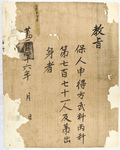 教旨
保人申得方武科丙科
第七百七十一人及第出
身者
萬曆 十六年 月 日